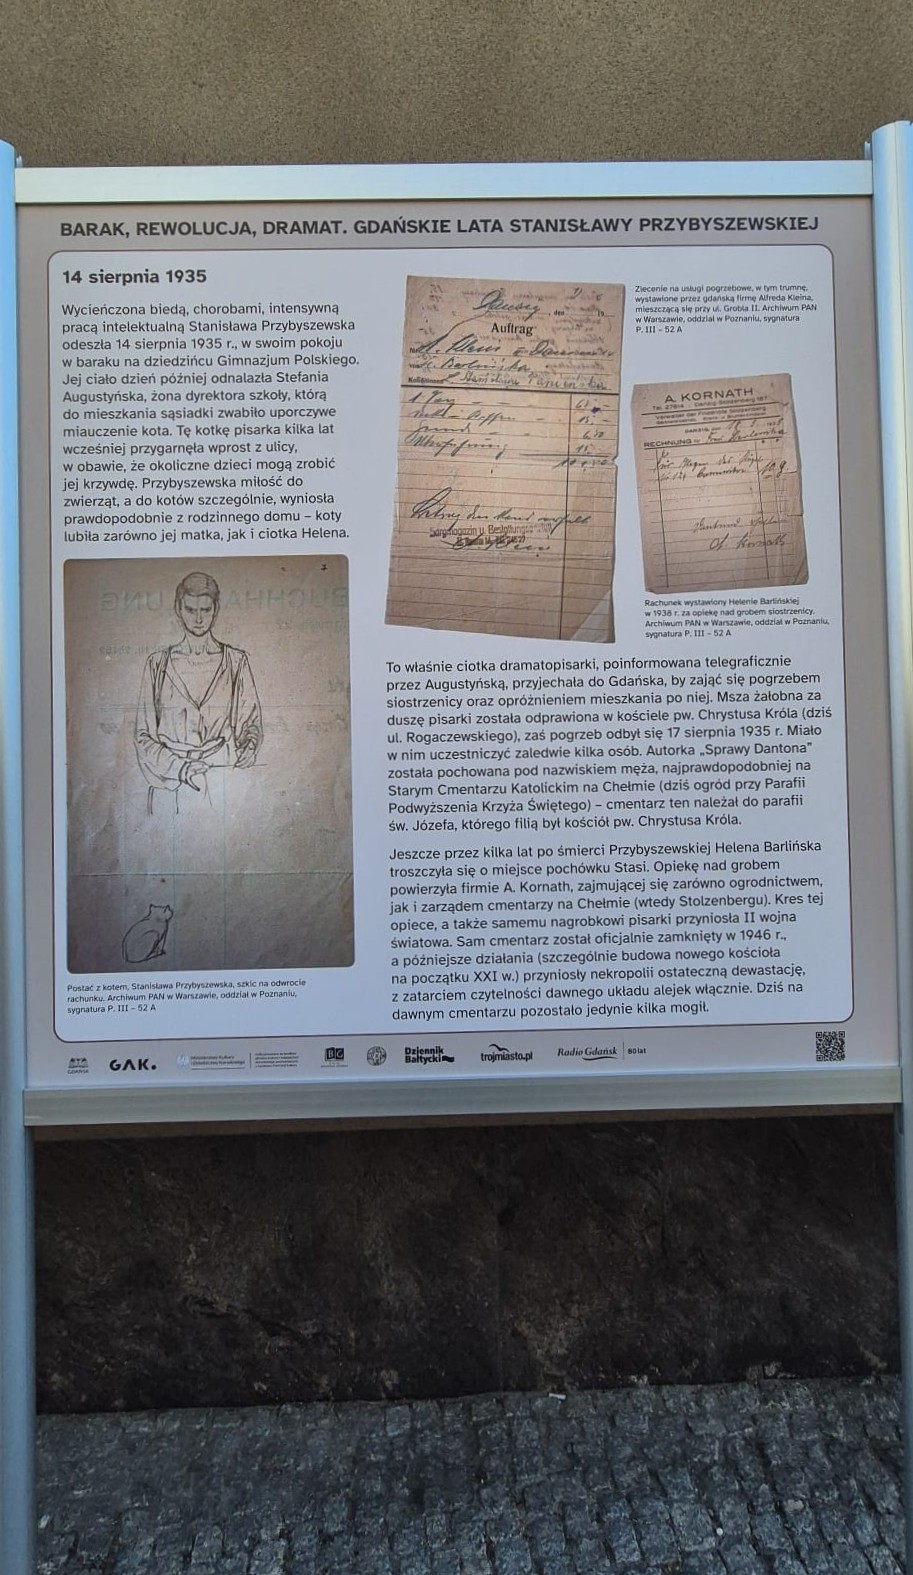 BARAK, REWOLUCJA, DRAMAT. GDAŃSKIE LATA STANISŁAWY PRZYBYSZEWSKIEJ
14 sierpnia 1935
Wycieńczona biedą, chorobami, intensywną
pracą intelektualną Stanisława Przybyszewska
odeszła 14 sierpnia 1935 r., w swoim pokoju
w baraku na dziedzińcu Gimnazjum Polskiego.
Jej ciało dzień później odnalazła Stefania
Augustyńska, żona dyrektora szkoły, którą
do mieszkania sąsiadki zwabiło uporczywe
miauczenie kota. Tę kotkę pisarka kilka lat
wcześniej przygarnęła wprost z ulicy,
w obawie, że okoliczne dzieci mogą zrobić
jej krzywdę. Przybyszewska miłość do
zwierząt, a do kotów szczególnie, wyniosła
prawdopodobnie z rodzinnego domu – koty
lubiła zarówno jej matka, jak i ciotka Helena.
Postać z kotem, Stanisława Przybyszewska, szkic na odwrocie
rachunku. Archiwum PAN w Warszawie, oddział w Poznaniu,
sygnatura P. III – 52 A
Danzig, den
Auftrag
Sargmagazin u. Bestattungs
Zlecenie na usługi pogrzebowe, w tym trumnę,
wystawione przez gdańską firmę Alfreda Kleina,
mieszczącą się przy ul. Grobla II. Archiwum PAN
w Warszawie, oddział w Poznaniu, sygnatura
P. III – 52 A
A. KORNATH
RECHNUNG
A. Kornath
Rachunek wystawiony Helenie Barlińskiej
w 1938 r. za opiekę nad grobem siostrzenicy.
Archiwum PAN w Warszawie, oddział w Poznaniu,
sygnatura P. III – 52 A
To właśnie ciotka dramatopisarki, poinformowana telegraficznie
przez Augustyńską, przyjechała do Gdańska, by zająć się pogrzebem
siostrzenicy oraz opróżnieniem mieszkania po niej. Msza żałobna za
duszę pisarki została odprawiona w kościele pw. Chrystusa Króla (dziś
ul. Rogaczewskiego), zaś pogrzeb odbył się 17 sierpnia 1935 r. Miało
w nim uczestniczyć zaledwie kilka osób. Autorka „Sprawy Dantona”
została pochowana pod nazwiskiem męża, najprawdopodobniej na
Starym Cmentarzu Katolickim na Chełmie (dziś ogród przy Parafii
Podwyższenia Krzyża Świętego) – cmentarz ten należał do parafii
św. Józefa, którego filią był kościół pw. Chrystusa Króla.
Jeszcze przez kilka lat po śmierci Przybyszewskiej Helena Barlińska
troszczyła się o miejsce pochówku Stasi. Opiekę nad grobem
powierzyła firmie A. Kornath, zajmującej się zarówno ogrodnictwem,
jak i zarządem cmentarzy na Chełmie (wtedy Stolzenbergu). Kres tej
opiece, a także samemu nagrobkowi pisarki przyniosła II wojna
światowa. Sam cmentarz został oficjalnie zamknięty w 1946 r.,
a późniejsze działania (szczególnie budowa nowego kościoła
na początku XXI w.) przyniosły nekropolii ostateczną dewastację,
z zatarciem czytelności dawnego układu alejek włącznie. Dziś na
dawnym cmentarzu pozostało jedynie kilka mogił.
GAK.
Dziennik
Bałtycki
trojmiasto.pl
Radio Gdańsk
80 lat